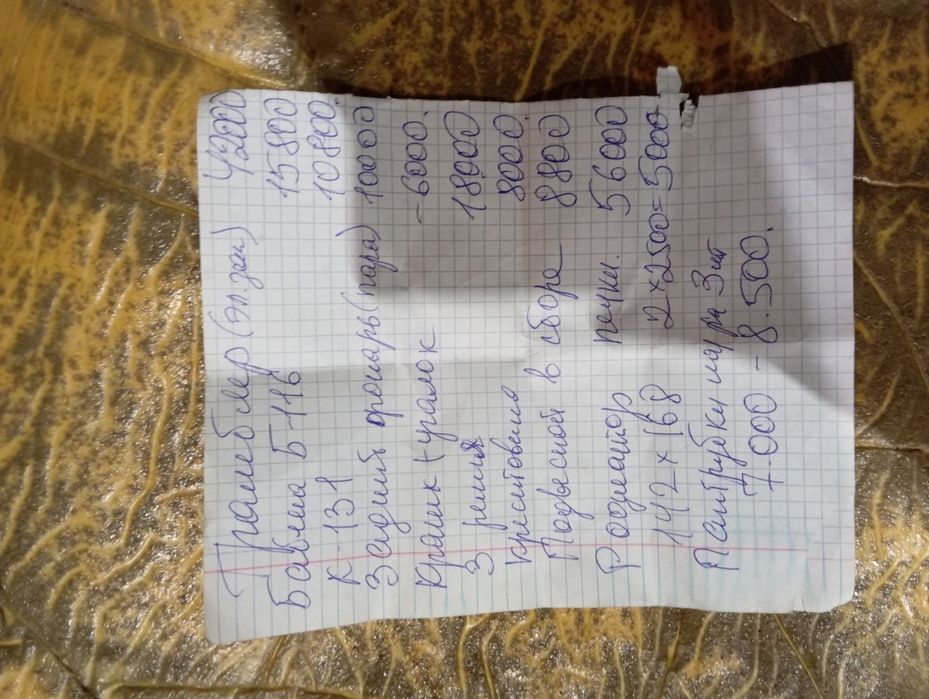 Трамблер (эл. зам) 42200
Бабина Б-116 15800
К-131 10800.
Задний фонарь (пара) 10000
Краник + уголок - 6000.
3 ремня 18000
Крестовина 8000
Подвесной в сборе 8800
Радиатор печки. 56000
142 x 168 2 x 2500 = 5000.
Патрубки нарж 3 шт
7.000 - 8.500.